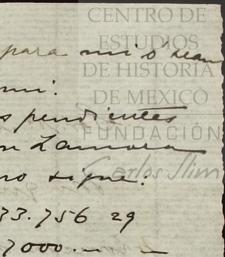 CENTRO DE
ESTUDIOS
DE HISTORIA
DE MEXICO
FUNDACIÓN
Carlos Slim
para mi
mi.
pendientes
Zamora
no sigue:
33.756 29
7000.